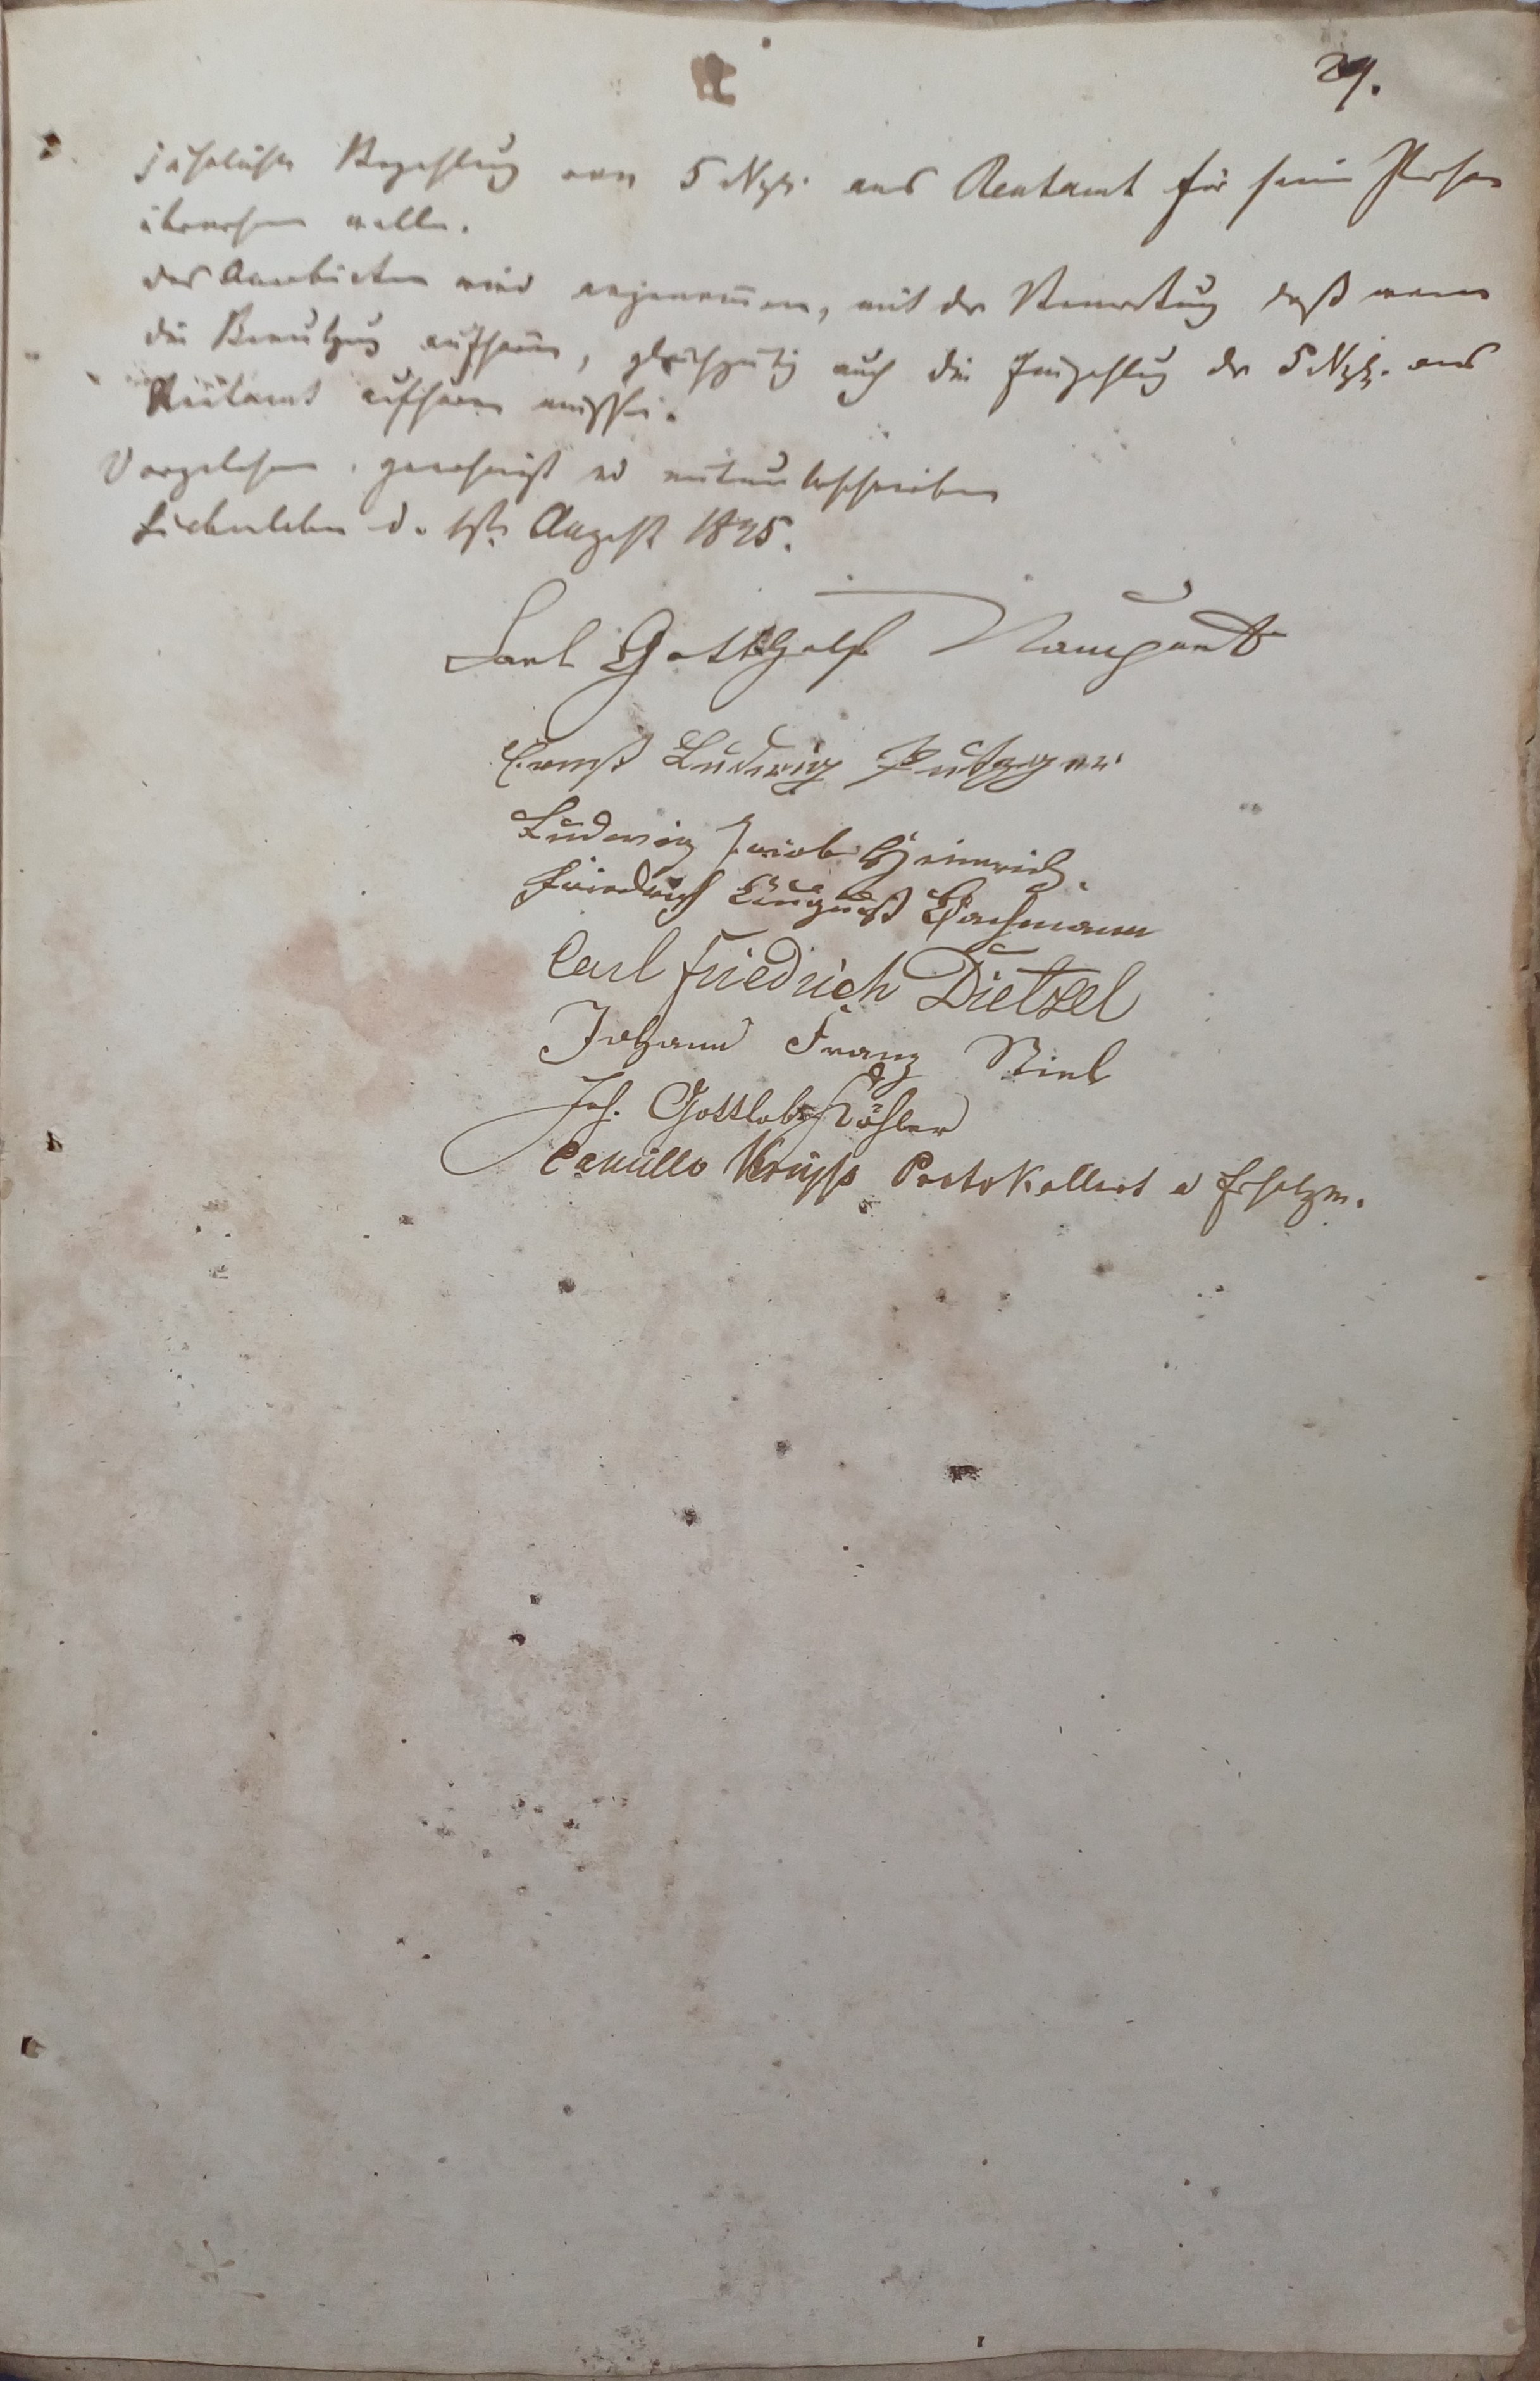 29.
jährliche Bezahlung von 5 Ngr. ans Rentamt für seine Person
übernehmen wolle.
das Anerbieten wird angenommen, mit der Bemerkung daß wenn
die Benutzung aufhöre, gleichzeitig auch die Einzahlung der 5 Ngr. ans
Rentamt aufhören müsse.
Vorgelesen, genehmigt und mitunterschrieben
d. August
Carl Gotthelf Naupert
Ernst Ludwig Putzger
Ludwig Jacob Heinrich.
Friedrich August Bachmann
Carl Friedrich Dietzel
Johann Franz Stiel
Joh. Gottlob Köhler
Camillo Krippo Protokollant u Ersatzm.